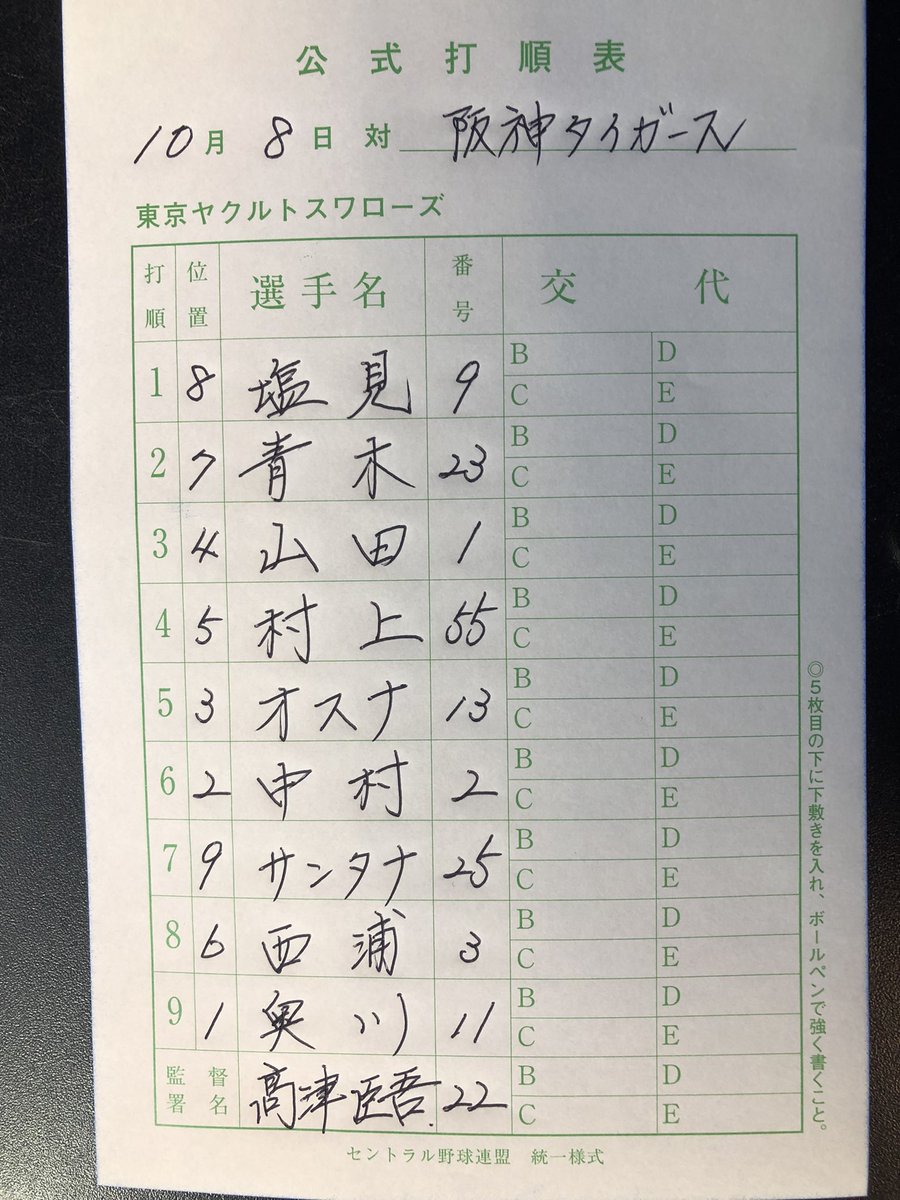 公式打順表
10月8日 対 阪神タイガース
東京ヤクルトスワローズ
打順 位置 選手名 番号 交代
1 8 塩見 9 B D
C E
2 7 青木 23 B D
C E
3 4 山田 1 B D
C E
4 5 村上 55 B D
C E
5 3 オスナ 13 B D
C E
6 2 中村 2 B D
C E
7 9 サンタナ 25 B D
C E
8 6 西浦 3 B D
C E
9 1 奥川 11 B D
C E
監督署名 高津臣吾 22 B D
C E
◎5枚目の下に下敷きを入れ、ボールペンで強く書くこと。
セントラル野球連盟 統一様式